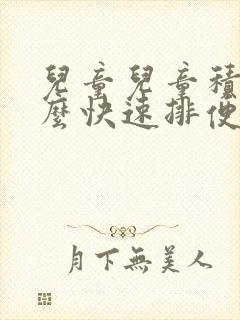 兒童兒童積
麼快速排便
月下無美人